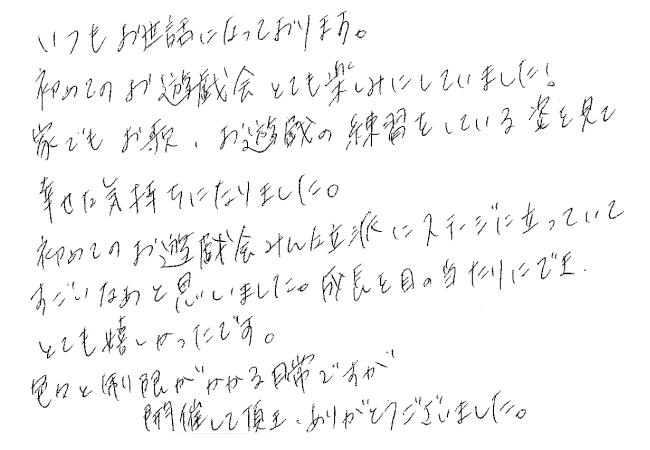 いつもお世話になっております。
初めてのお遊戯会とても楽しみにしていました!
家でもお歌、お遊戯の練習をしている姿を見て
幸せな気持ちになりました。
初めてのお遊戯会みんな立派にステージに立っていて
すごいなぁと思いました。成長を目の当たりにでき、
とても嬉しかったです。
色々と制限がかかる日常ですが
開催して頂き、ありがとうございました。